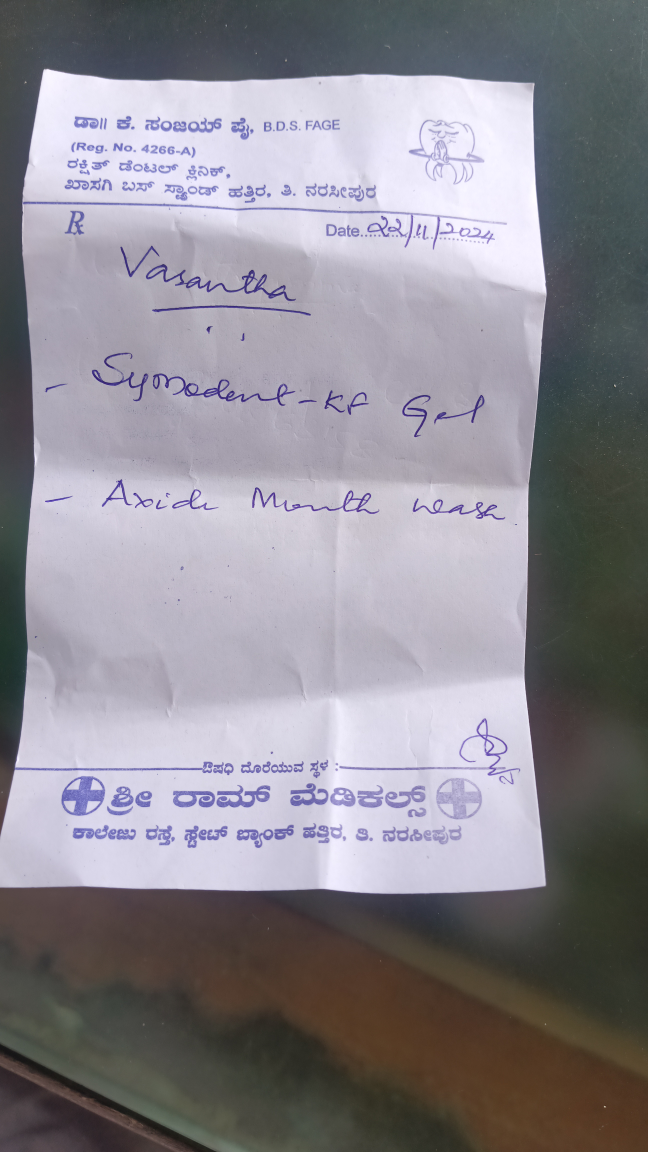 ಡಾ|| ಕೆ. ಸಂಜಯ್ ಪೈ, B.D.S. FAGE
(Reg. No. 4266-A)
ರಕ್ಷಿತ್ ಡೆಂಟಲ್ ಕ್ಲಿನಿಕ್,
ಖಾಸಗಿ ಬಸ್ ಸ್ಟ್ಯಾಂಡ್ ಹತ್ತಿರ, ತಿ. ನರಸೀಪುರ
℞
Date 22/11/2024
Vasantha
- Gel
- Mouth wash
ಔಷಧಿ ದೊರೆಯುವ ಸ್ಥಳ :
ಶ್ರೀ ರಾಮ್ ಮೆಡಿಕಲ್ಸ್
ಕಾಲೇಜು ರಸ್ತೆ, ಸ್ಟೇಟ್ ಬ್ಯಾಂಕ್ ಹತ್ತಿರ, ತಿ. ನರಸೀಪುರ